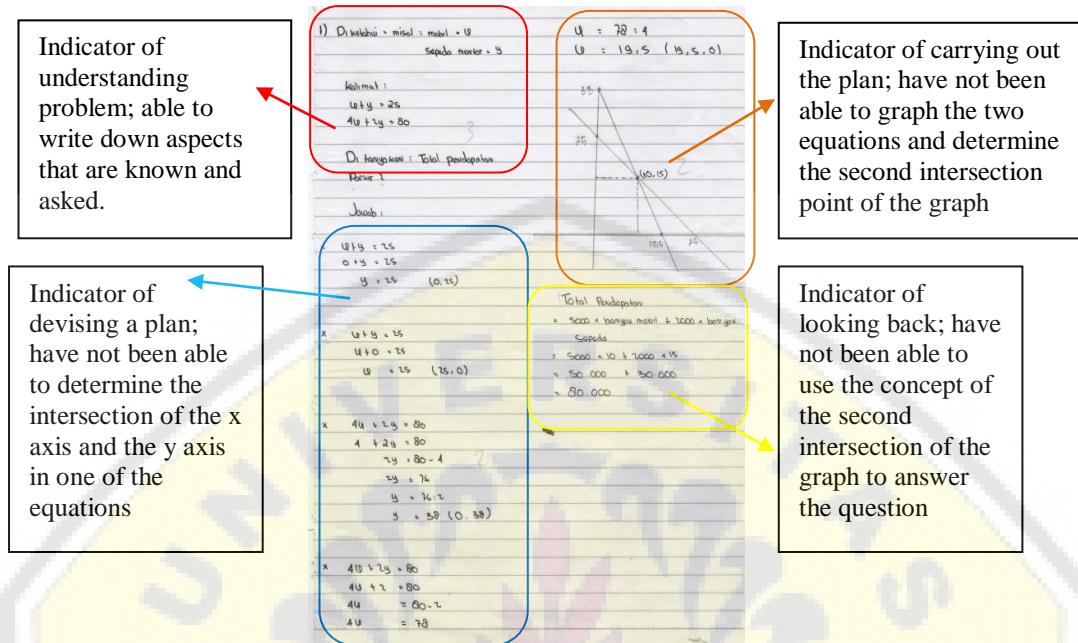 Indicator of
understanding
problem; able to
write down aspects
that are known and
asked.
Indicator of
devising a plan;
have not been able
to determine the
intersection of the x
axis and the y axis
in one of the
equations
1) Diketahui = misal = mobil = x
sepeda montor = y
Kalimat :
x + y = 25
4x + 2y = 80
3
Di tanyakan : Total pendapatan
Parkir ?
Jawab :
x + y = 25
0 + y = 25
y = 25 (0,25)
x x + y = 25
x + 0 = 25
x = 25 (25,0)
x 4x + 2y = 80
4 + 2y = 80
2y = 80 - 4
2y = 76
y = 76 : 2
y = 38 (0.38)
2
x 4x + 2y = 80
4x + 2 = 80
4x = 80 - 2
4x = 78
x = 78 : 4
x = 19,5 (19,5,0)
38
25
(10,15)
2
19,5 25
Total Pendapatan
= 5000 x banyak mobil + 2000 x banyak
Sepeda
= 5000 x 10 + 2000 x 15
= 50.000 + 30.000
= 80.000
Indicator of carrying out
the plan; have not been
able to graph the two
equations and determine
the second intersection
point of the graph
Indicator of
looking back; have
not been able to
use the concept of
the second
intersection of the
graph to answer
the question
UNIVERSITAS